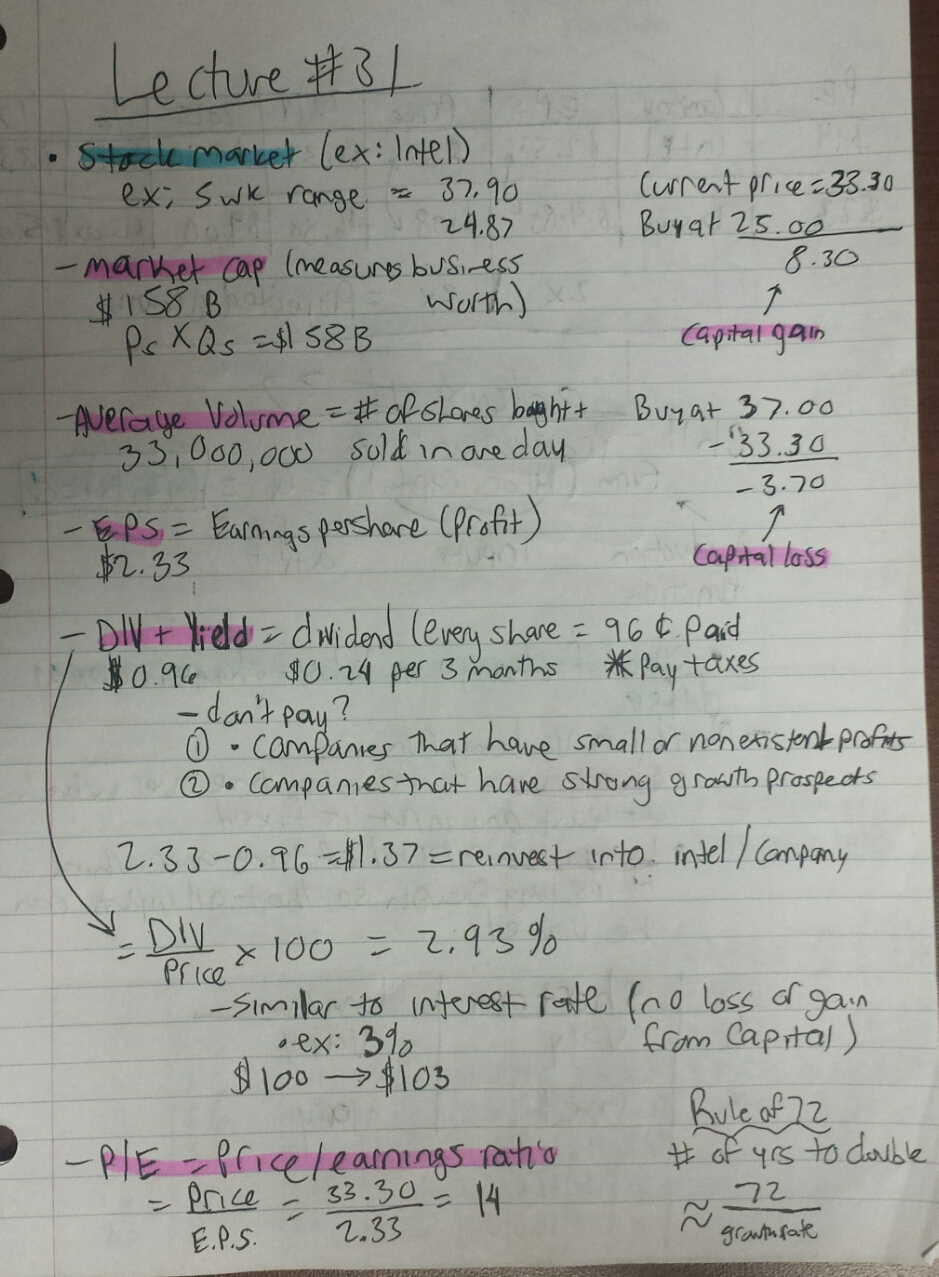 Lecture #31
• Stock market (ex: Intel)
ex: 5wk range = 37.90
24.87
Current price = 33.30
Buy at 25.00
8.30
↑
Capital gain
- market cap (measures business
$158 B worth)
Ps X Qs = $158B
- Average Volume = # of shares bought +
33,000,000 sold in one day
Buy at 37.00
- 33.30
- 3.70
↑
Capital loss
- EPS = Earnings per share (Profit)
$2.33
- DIV + Yield = dividend (every share = 96 ¢ paid
$0.96 $0.24 per 3 months * Pay taxes
- don't pay?
① • Companies that have small or nonexistent profits
② • Companies that have strong growth prospects
2.33 - 0.96 = $1.37 = reinvest into intel / Company
= DIV / Price × 100 = 2.93%
- Similar to interest rate (no loss or gain
from Capital)
• ex: 3%
$100 → $103
- P/E = Price/earnings ratio
= Price / E.P.S. = 33.30 / 2.33 = 14
Rule of 72
# of yrs to double
≈ 72 / growth rate